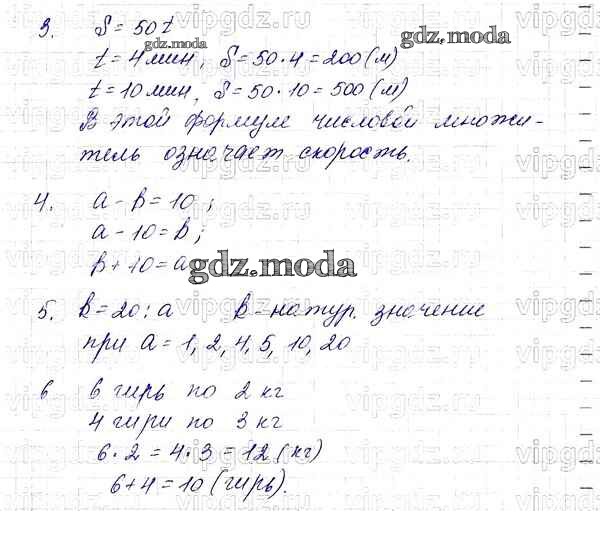 3. S = 50t
t = 4 мин, S = 50 · 4 = 200 (м)
t = 10 мин, S = 50 · 10 = 500 (м)
В этой формуле числовой множи-
тель означает скорость.
4. a - b = 10;
a - 10 = b;
b + 10 = a
5. b = 20 : a b - натур. значение
при a = 1, 2, 4, 5, 10, 20
6 6 гирь по 2 кг
4 гири по 3 кг
6 · 2 = 4 · 3 = 12 (кг)
6 + 4 = 10 (гирь).
gdz.moda
gdz.moda
gdz.moda
vipgdz.ru